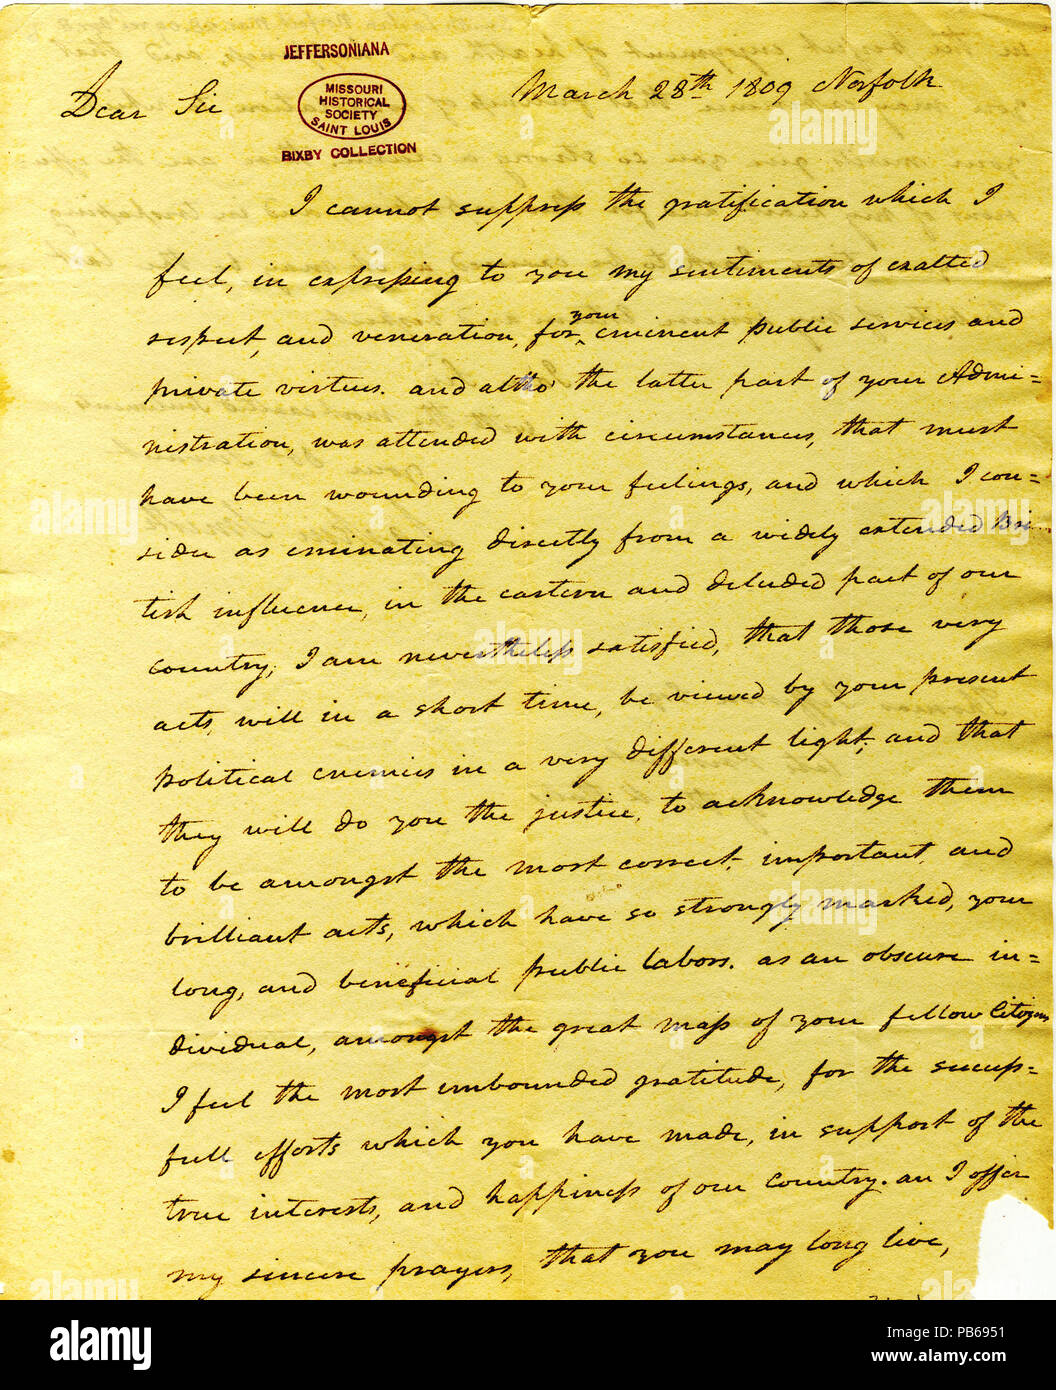 JEFFERSONIANA
MISSOURI
HISTORICAL
SOCIETY
SAINT LOUIS
BIXBY COLLECTION
March 28th 1809 Norfolk
Dear Sir
I cannot suppress the gratification which I
feel, in expressing to you my sentiments of exalted
respect, and veneration, for your eminent public services and
private virtues. and altho' the latter part of your Admi=
nistration, was attended with circumstances, that must
have been wounding to your feelings, and which I con=
sider as eminating directly from a widely extended Bri=
tish influence, in the eastern and deluded part of our
country; I am nevertheless satisfied, that those very
acts, will in a short time, be viewed by your present
political enemies in a very different light; and that
they will do you the justice, to acknowledge them
to be amongst the most correct, important, and
brilliant acts, which have so strongly marked, your
long, and beneficial public labors. as an obscure in=
dividual, amongst the great mass of your fellow Citizens
I feel the most unbounded gratitude, for the success=
full efforts which you have made, in support of the
true interests, and happiness of our Country. an I offer
my sincere prayers, that you may long live,
alamy
alamy
Image ID: PB6951
www.alamy.com